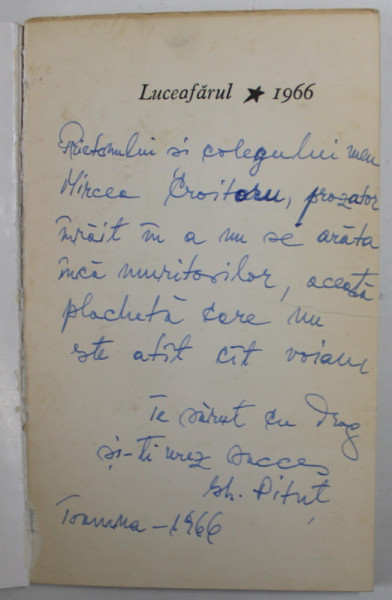 Luceafărul ★ 1966
Prietenului și colegului meu
Mircea Croitoru, prozator
înrăit în a nu se arăta
încă muritorilor, această
plachetă care nu
este atît cît voiam
Te sărut cu drag
și-ți urez succes
Gh. Pituț
Toamna - 1966